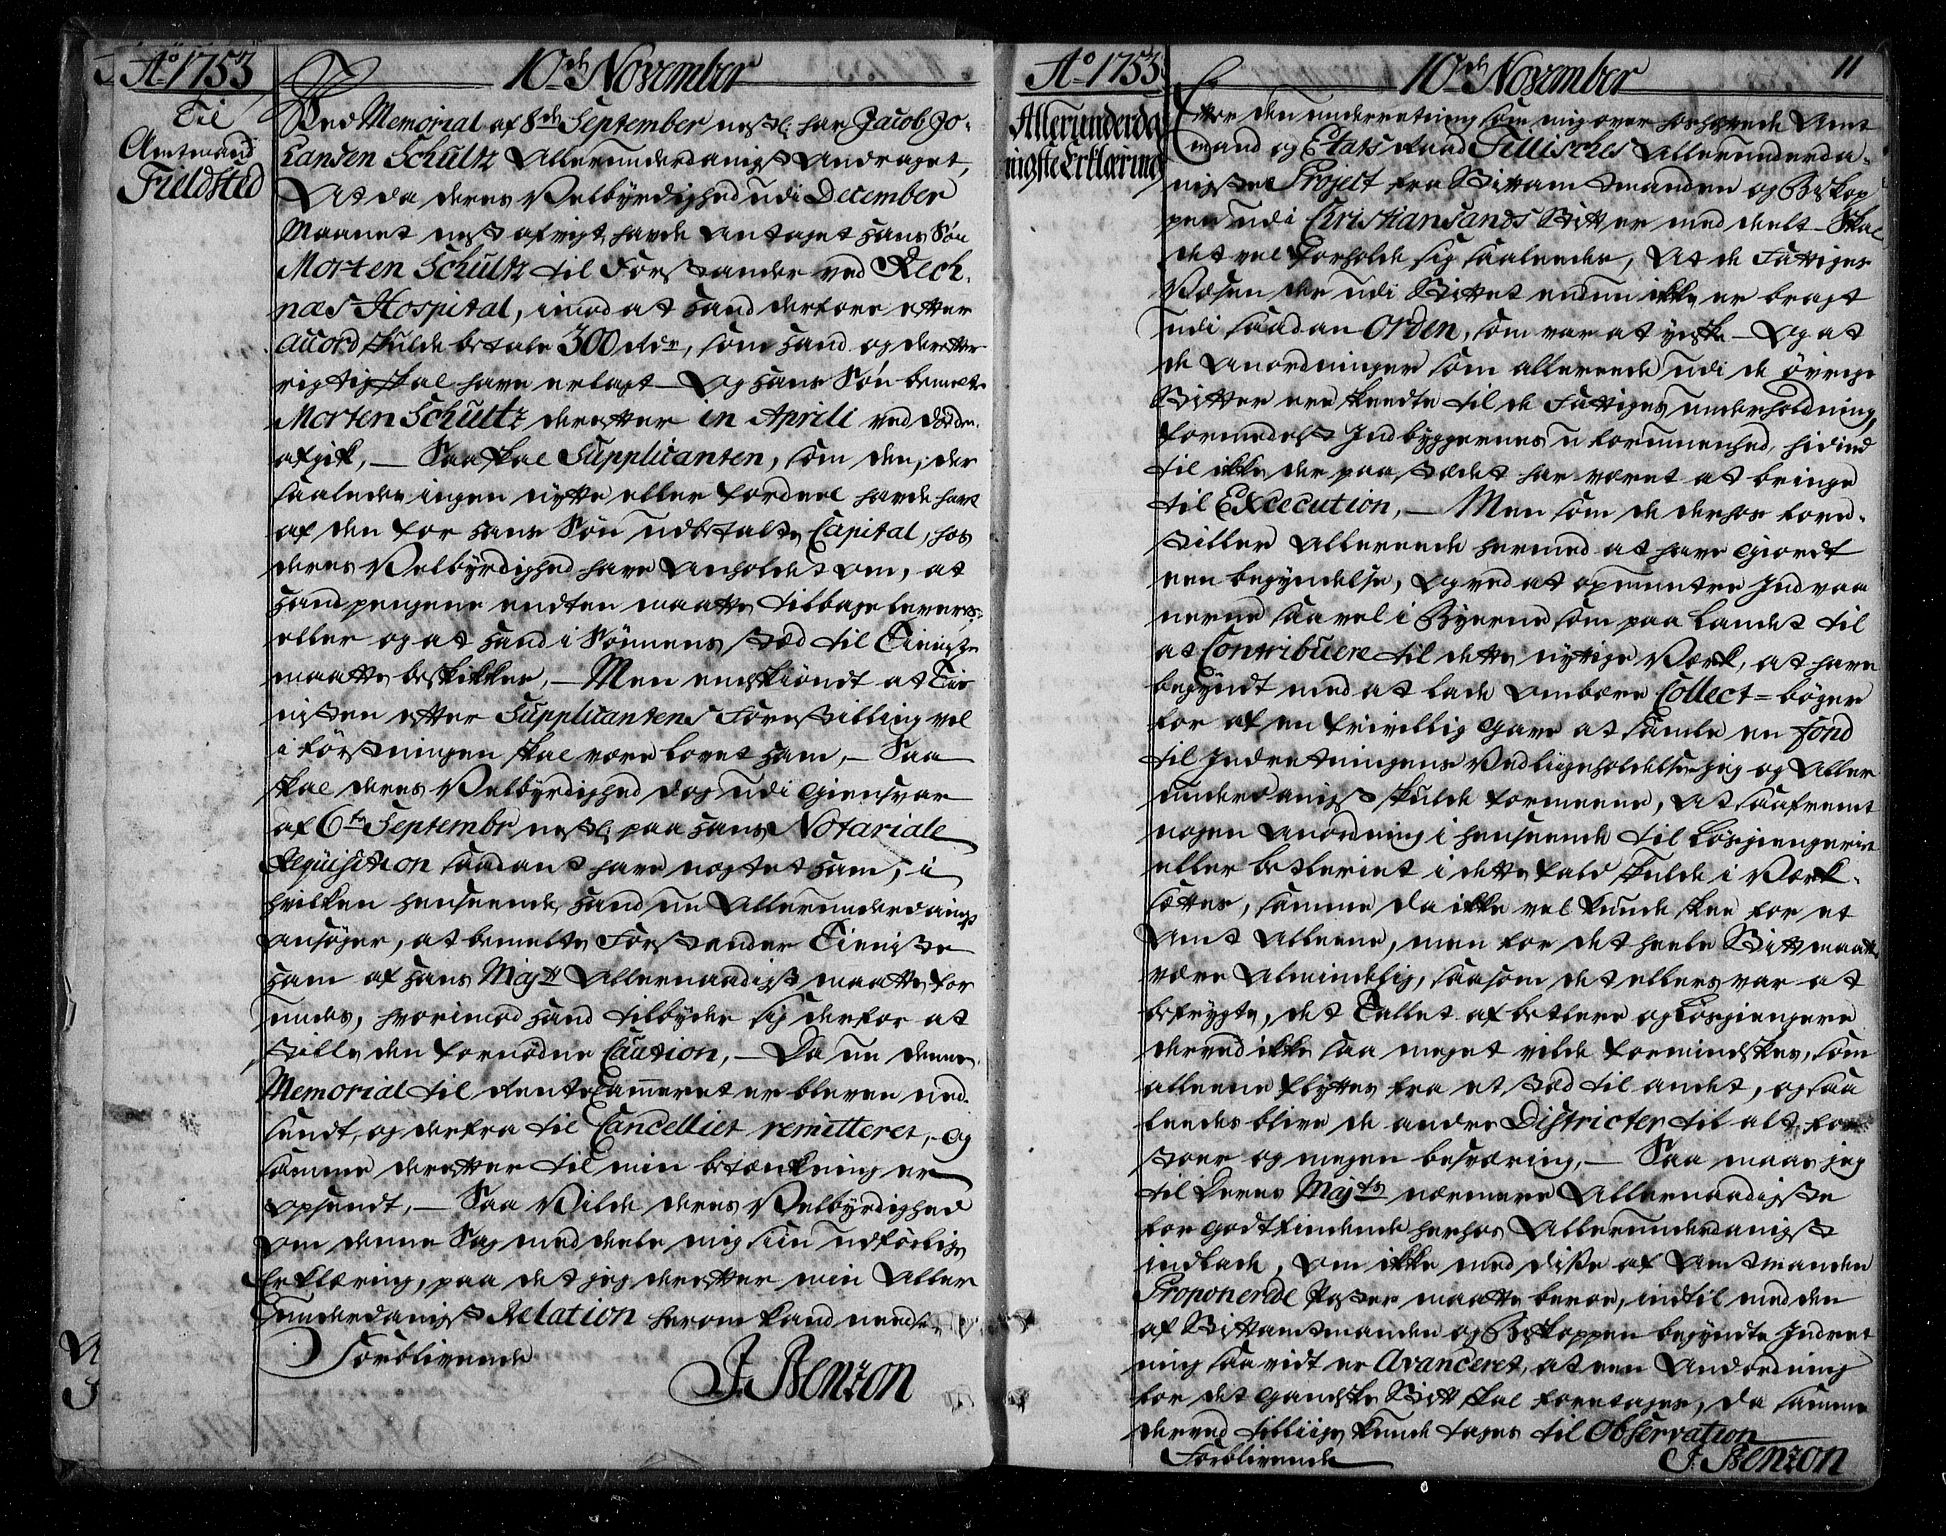 Ao 1753
10de November
Til
Amtmand
Fieldsted
Ved Memorial af 8de September nestl: har Jacob Jo-
hansen Schultz Allerunderdanigst Andraget,
At da deres Velbyrdighed udi December
Maanet nest afvigt havde Antaget hans Søn
Morten Schultz til Forstander ved Rech-
næs Hospital, imod at hand derfore efter
accord skulde betale 300 rdr, som hand og derefter
rigtig skal have erlagt – Og hans Søn bemelte
Morten Schultz derefter in Aprili ved Døden
afgik, – Saa skal Supplicanten, som den, der
saaleds ingen nytte eller fordeel havde havt
af den for hans Søn udbetalte Capital, hos
deres Velbyrdighed have Anholdet om, at
hand pengene endten maatte tilbage leveres
eller og at hand i Sønnens stæd til Tieniste
maatte beskikkes, – Men endskiøndt at Tie
nisten efter Supplicantens Forestilling vel
i førstningen skal være lovet ham, – Saa
skal deres Velbyrdighed dog udi Giensvar
af 6te Septembr nestl: paa hans Notariale
Requisition saadant have negtet ham, i
hvilken henseende hand nu Allerunderdanigst
ansøger, at bemelte Forstander Tieniste
ham af Hans Majts Allernaadigst maatte for
undes, hvorimod hand tilbyder sig derfor at
stille den fornødne Caution, – Da nu denne
Memorial til RenteCammeret er bleven ned-
sendt, og derfra til Cancelliet remitteret, – og
samme derefter til min betænkning er
opsendt, – Saa Vilde deres Velbyrdighed
om denne Sag meddeele mig sin udførlige
Erklæring, paa det jeg derefter min Aller
underdanigst Relation herom kand needsende
Forblivende
J. Benzon
Ao 1753
10de November
11
Allerunderda
nigste Erklæring
Efter den underretning som mig over hoshæved Amt
mand og Etats Raad Fillisches Allerunderda-
nigste Project fra Stiftamtmanden og Biskop
pen udi Christiansands Stift er meddeelt – Skal
det vel forholde sig saaleedes, At de Fattiges
Væsen der udi Stiftet endnu ikke er bragt
udi saadan Orden, som var at ynske – Og at
de Anordninger som allereede udi de øvrige
Stifter ere skeedte til de Fattiges underholdning,
formedelst Indbyggernes u formuenhed, hidind
til ikke der paa stædet har været at bringe
til Excecution, – Men som de derhos fore-
stiller Allereede hermed at have Giordt
een begyndelse, Og ved at opmuntre Indvaa
nerne saavel i Byerne som paa Landet til
at Contribuere til dette nyttige Værk, at have
begyndt med at lade ombære Collect = bøger
for af en frivillig Gave at samle en fond
til Indretningens Vedligeholdelse – jeg og Aller
underdanigst skulde formeene, At saafremt
nogen Anordning i henseende til Løsgiængerie
eller betleriet i dette Fald skulde i Værk-
sættes, samme da ikke vel kunde skee for et
Amt Alleene, men for det heele Stift maatte
være Almindelig, saasom det ellers var at
befrygte, det Tallet af betlere og Løsgiengere
derved ikke saa meget vilde formindskes, som
alleene flyttes fra et stæd til andet, og saa
leedes blive de andre Districter til alt for
stoer og megen besværing, – Saa maae jeg
til Deres Majts nærmere Allernaadigste
for Godtfindende herhos Allerunderdanigst
indlade, om ikke med disse af Amtmanden
Proponerede Poster maatte beroe, indtil med den
af Stiftamtmanden og Biskoppen begyndte Indret
ning saa vidt er Avanceret, at een Anordning
for det Gandske Stift skal foretages, da samme
derved tilliige kunde tages til Observation
Forblivende
J. Benzon